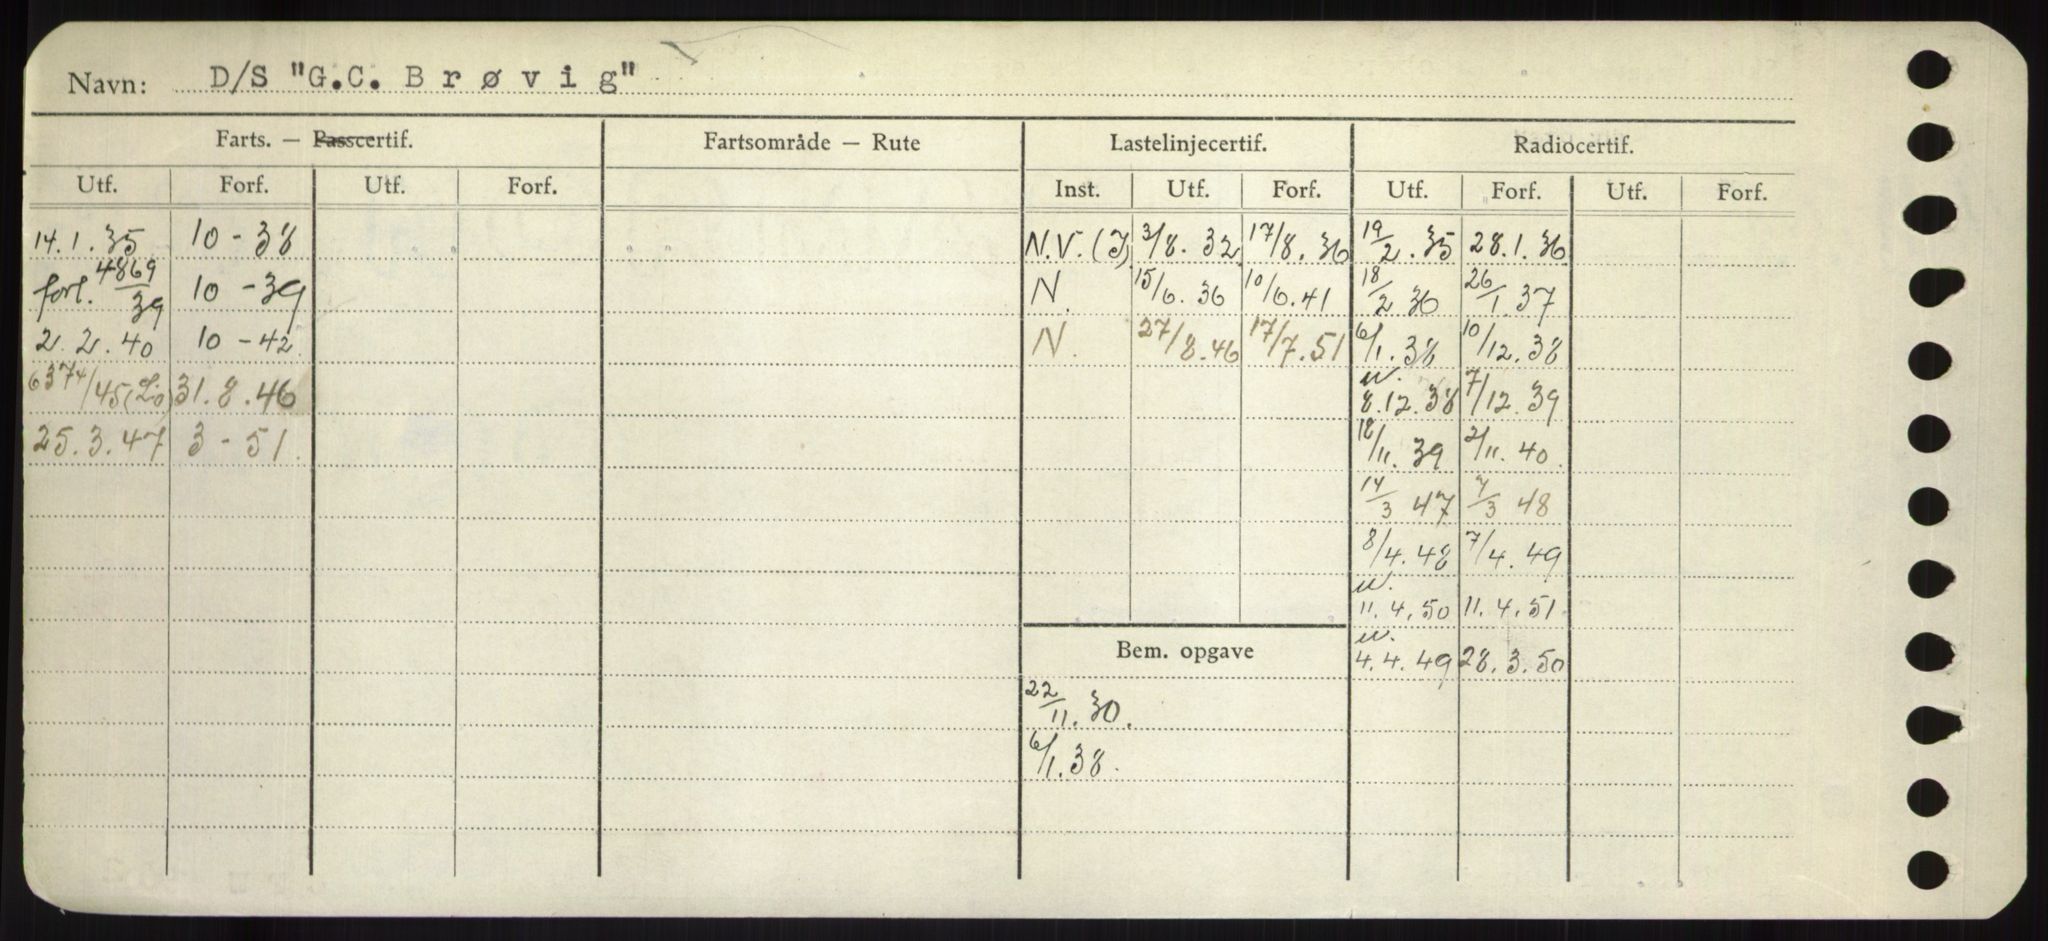 Navn: D/S "G.C. Brøvig"
Farts. — Passcertif. Fartsområde — Rute Lastelinjecertif. Radiocertif.
Utf. Forf. Utf. Forf. Inst. Utf. Forf. Utf. Forf. Utf. Forf.
14.1.35 10-38 N.V.(I) 3/8.32 17/8.36 19/2.35 28.1.36
forl. 4869/39 10-39 N. 15/6.36 10/6.41 18/2 36 26/1.37
2.2.40 10-42 N. 27/8.46 17/7.51 6/1.38 10/12.38
6374/45 (Lo) 31.8.46 8.12.38 7/12.39
25.3.47 3-51. 18/11.39 2/11.40
14/3 47 7/3 48
8/4.48 7/4.49
11.4.50 11.4.51
Bem. opgave 4.4.49 28.3.50
22/11.30.
6/1.38.